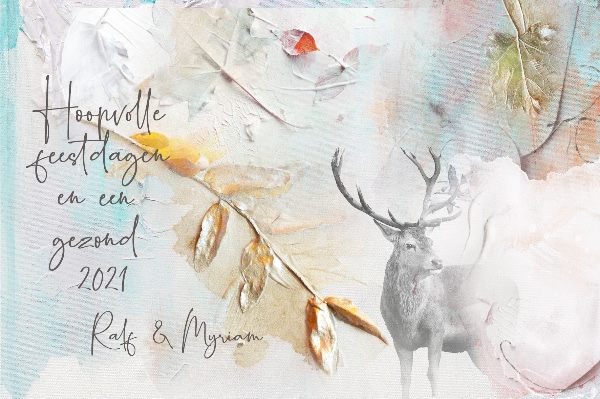 Hoopvolle
feestdagen
en een
gezond
2021
Ralf & Myriam